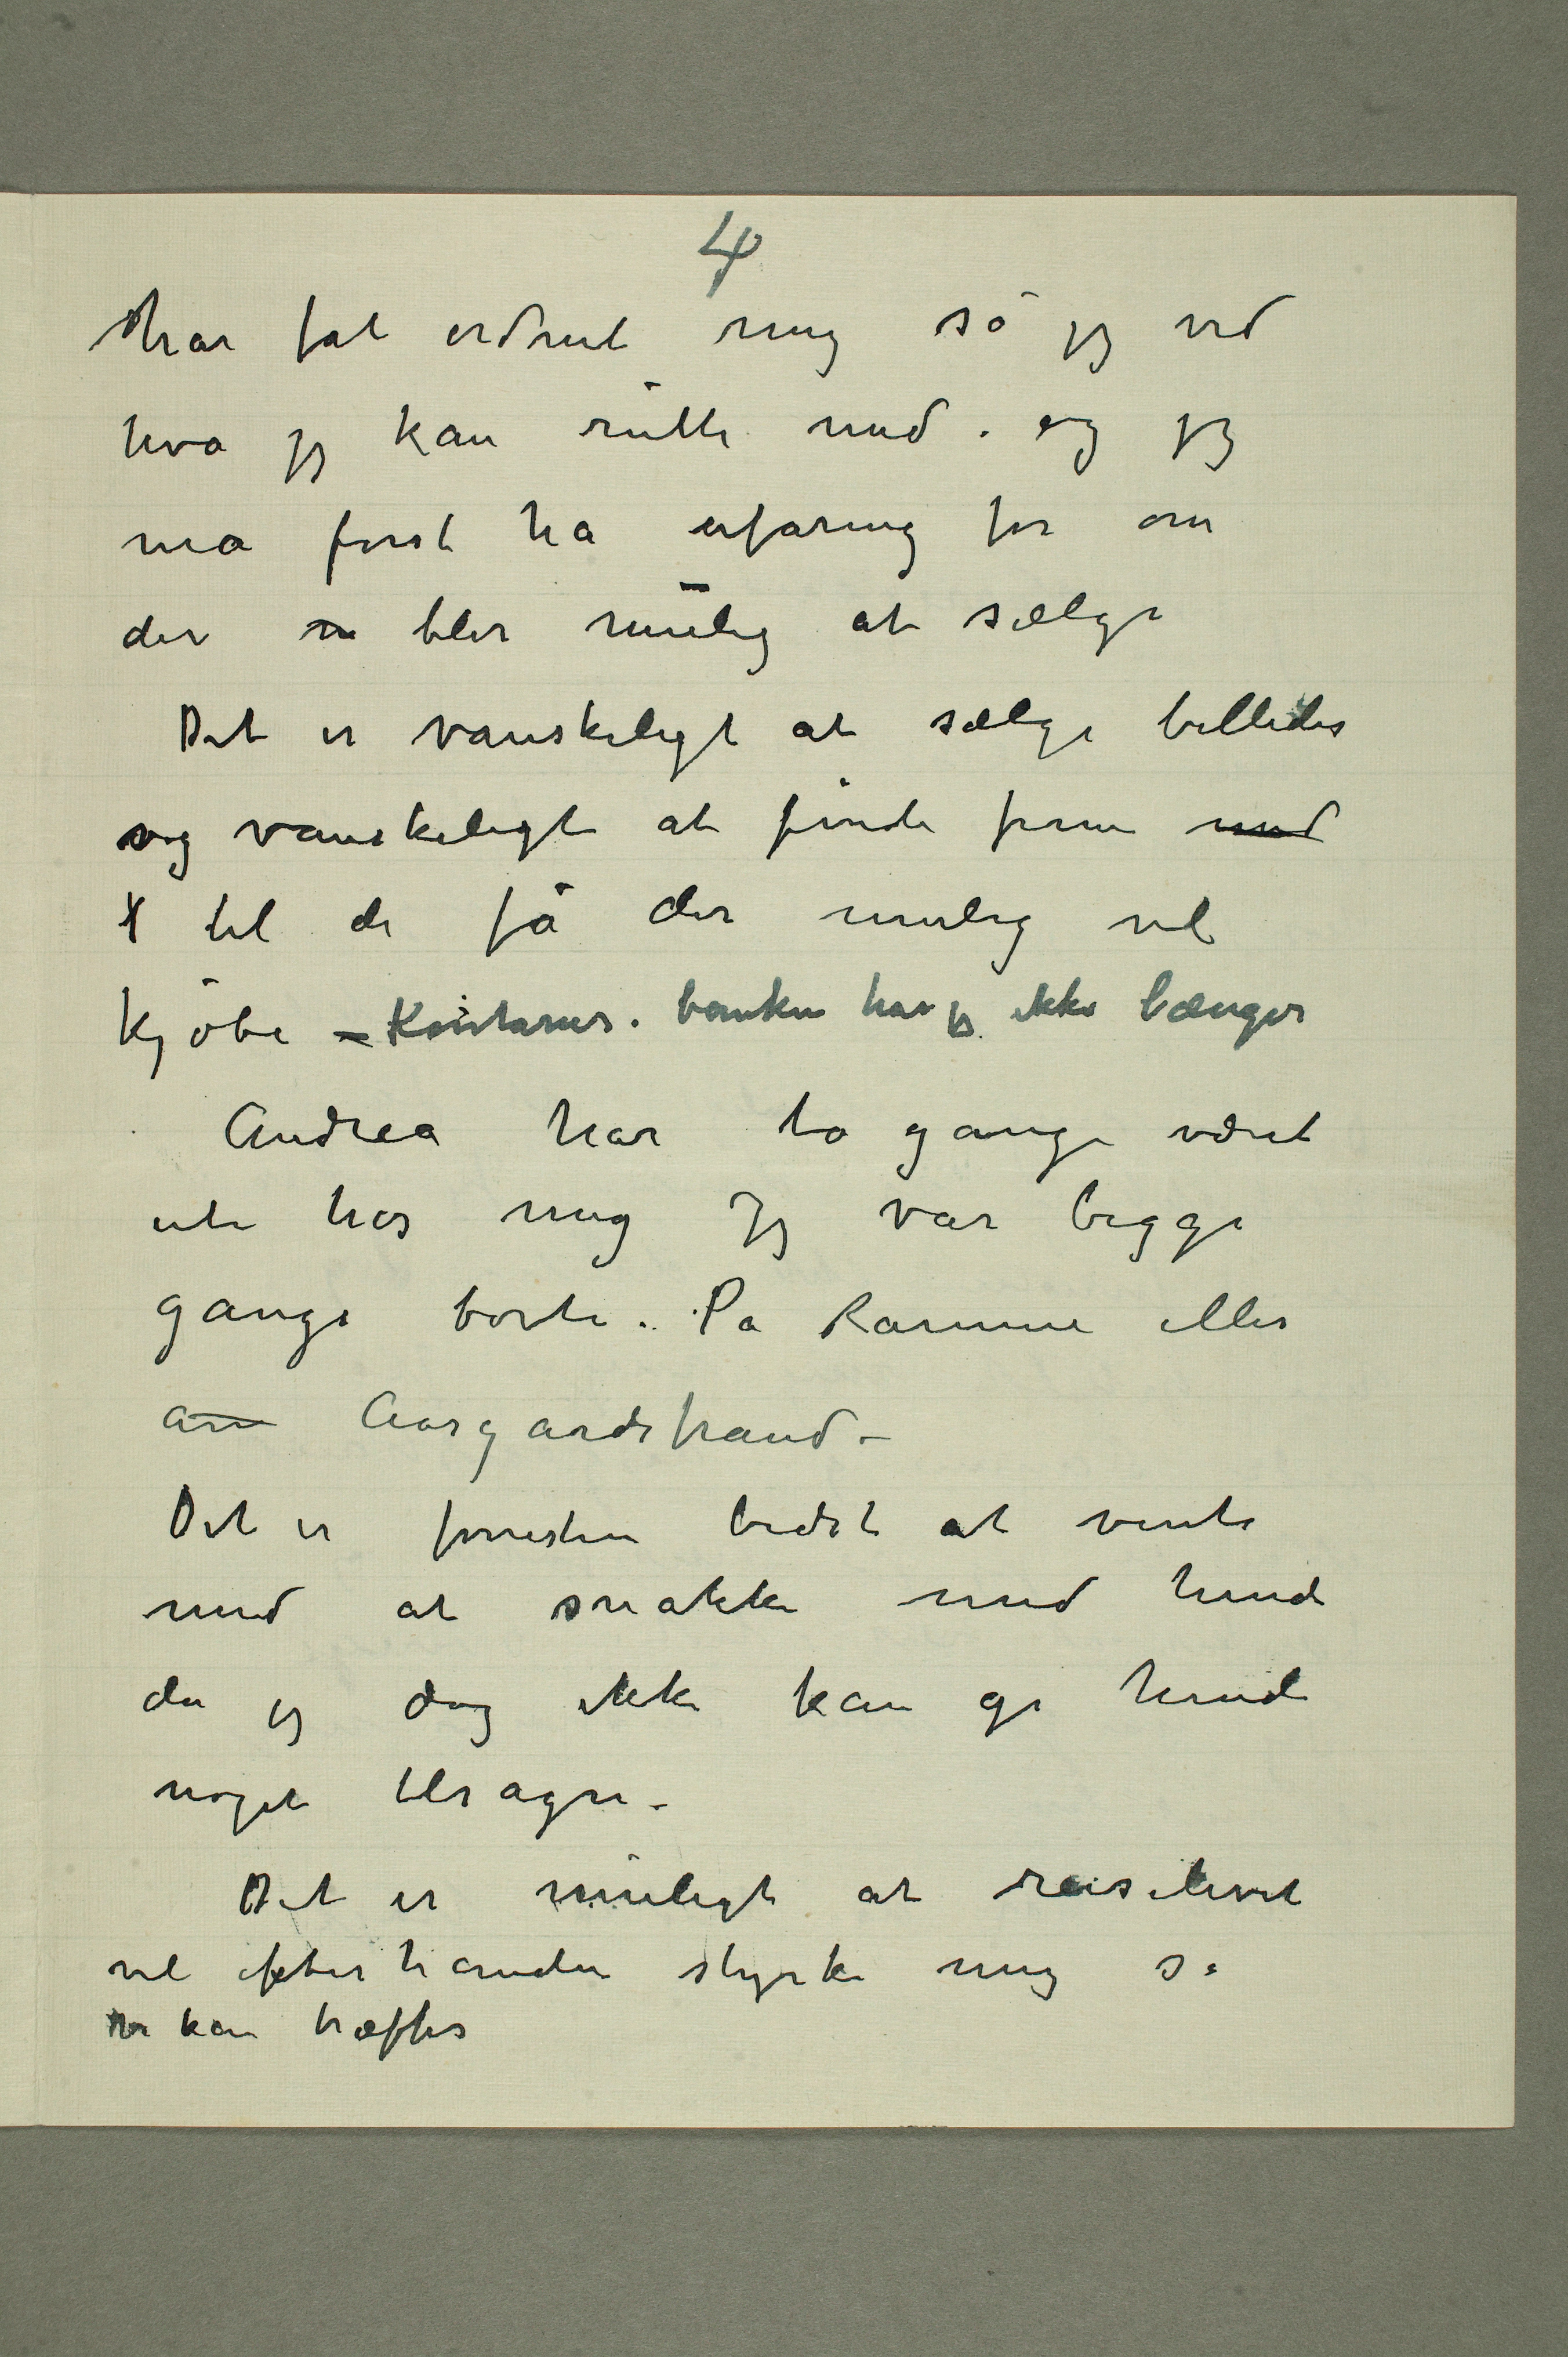 4
har fåt ordnet mig så jeg ved
hva jeg kan rutte med. og jeg
ma først ha erfaring for om
der blir mulig at sælge
Det er vanskeligt at sælge billeder
og vanskeligt at finde frem med
til de få der mulig vil
kjøbe – Kontanter. banken har jeg ikke længer
Andrea har to gange været
ute hos mig Jeg var begge
gange borte. På Ramme eller
Aasgardstrand –
Det er forresten bedst at vente
med at snakke med hende
da jeg dog ikke kan gi hende
noget tilsagn –
Det er muligt at reiselivet
vil efterhanden styrke mig så
vi kan træffes